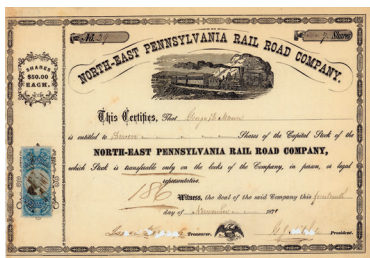 No. 2
Share
NORTH-EAST PENNSYLVANIA RAIL ROAD COMPANY.
SHARES
$50.00
EACH.
This Certifies, That
is entitled to Shares of the Capital Stock of the
NORTH-EAST PENNSYLVANIA RAIL ROAD COMPANY,
which Stock is transferable only on the books of the Company, in person, or legal
representative.
186
Witness, the Seal of the said Company this
day of 187
Treasurer.
President.